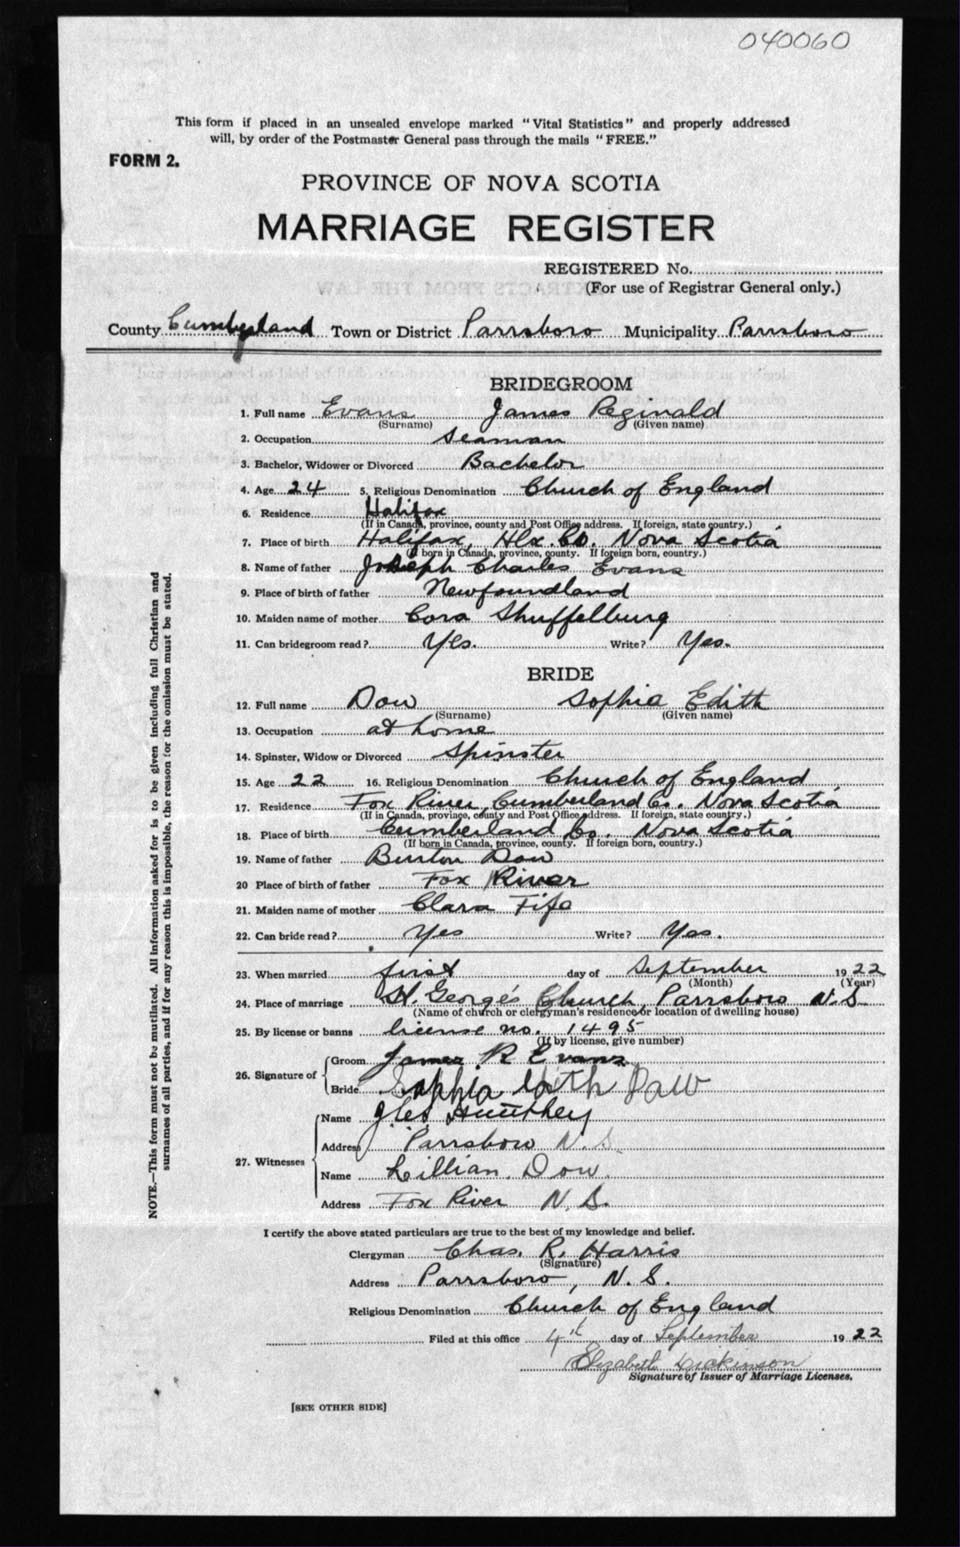 040060
This form if placed in an unsealed envelope marked "Vital Statistics" and properly addressed
will, by order of the Postmaster General pass through the mails "FREE."
FORM 2.
PROVINCE OF NOVA SCOTIA
MARRIAGE REGISTER
REGISTERED No.
(For use of Registrar General only.)
County Cumberland Town or District Parrsboro Municipality Parrsboro
BRIDEGROOM
1. Full name Evans James Reginald
(Surname) (Given name)
2. Occupation Seaman
3. Bachelor, Widower or Divorced Bachelor
4. Age 24 5. Religious Denomination Church of England
6. Residence Halifax
(If in Canada, province, county and Post Office address. If foreign, state country.)
7. Place of birth Halifax, Hlx. Co. Nova Scotia
(If born in Canada, province, county. If foreign born, country.)
8. Name of father Joseph Charles Evans
9. Place of birth of father Newfoundland
10. Maiden name of mother Cora Shuffelburg
11. Can bridegroom read? Yes. Write? Yes.
BRIDE
12. Full name Dow Sophia Edith
(Surname) (Given name)
13. Occupation at home
14. Spinster, Widow or Divorced Spinster
15. Age 22 16. Religious Denomination Church of England
17. Residence Fox River, Cumberland Co. Nova Scotia
(If in Canada, province, county and Post Office address. If foreign, state country.)
18. Place of birth Cumberland Co. Nova Scotia
(If born in Canada, province, county. If foreign born, country.)
19. Name of father Burton Dow
20 Place of birth of father Fox River
21. Maiden name of mother Clara Fife
22. Can bride read? Yes Write? Yes.
23. When married first day of September 1922
(Month) (Year)
24. Place of marriage St. George's Church, Parrsboro N.S
(Name of church or clergyman's residence or location of dwelling house)
25. By license or banns license no. 1495
(If by license, give number)
26. Signature of Groom James R Evans
Bride Sophia Edith Dow
27. Witnesses Name
Address Parrsboro N.S.
Name Lillian Dow
Address Fox River N.S.
I certify the above stated particulars are true to the best of my knowledge and belief.
Clergyman Chas. R. Harris
(Signature)
Address Parrsboro, N.S.
Religious Denomination Church of England
Filed at this office 4th day of September 1922
Elizabeth Dickinson
Signature of Issuer of Marriage Licenses.
[SEE OTHER SIDE]
NOTE.—This form must not be mutilated. All information asked for is to be given including full Christian and
surnames of all parties, and if for any reason this is impossible, the reason for the omission must be stated.